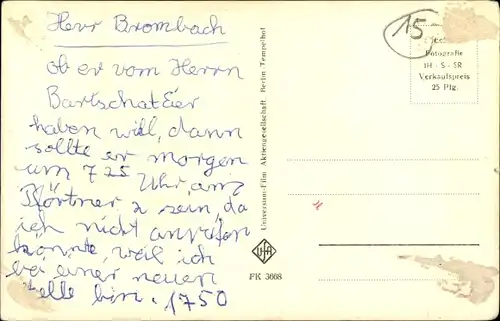 Herr Brombach
ob er vom Herrn
Bartschat Eier
haben will, dann
sollte er morgen
um 7 25 Uhr, am
Pförtner 2 sein, da
ich nicht anrufen
könnte, weil ich
bei einer neuen
telle bin. 1750
Universum-Film Aktiengesellschaft Berlin Tempelhof
15
Fotografie
IH - S - SR
Verkaufspreis
25 Pfg.
UFA
FK 3668